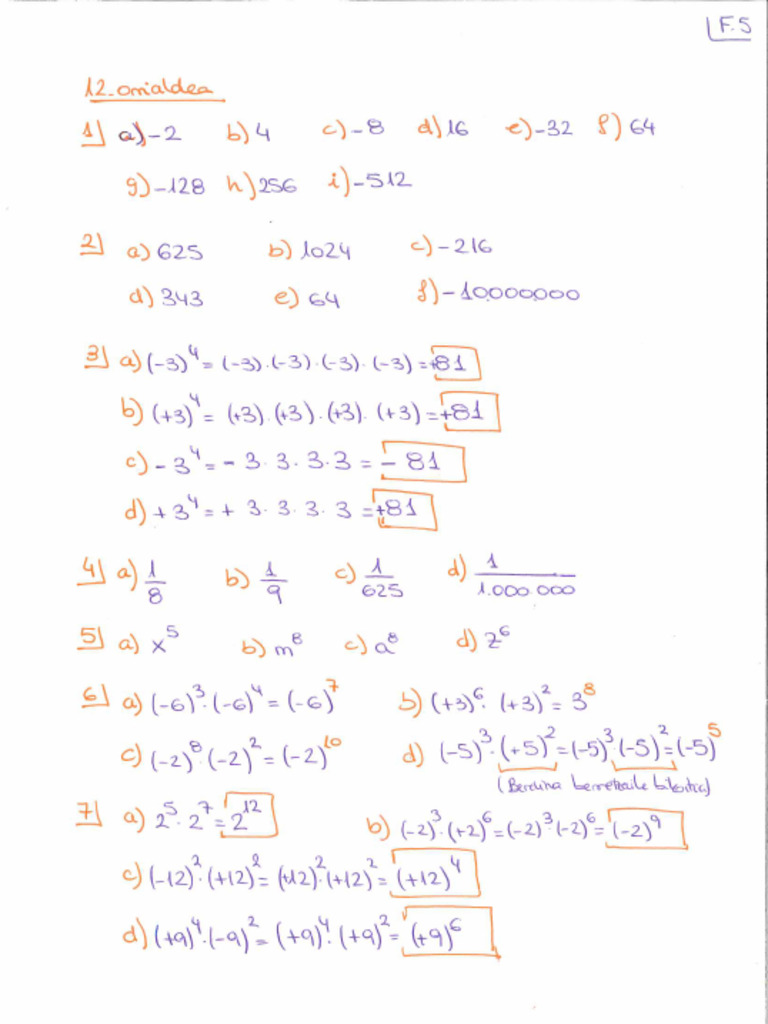 F.S
12. orrialdea
1) a) -2 b) 4 c) -8 d) 16 e) -32 f) 64
g) -128 h) 256 i) -512
2) a) 625 b) 1024 c) -216
d) 343 e) 64 f) -10.000.000
3) a) (-3)⁴ = (-3)·(-3)·(-3)·(-3) = +81
b) (+3)⁴ = (+3)·(+3)·(+3)·(+3) = +81
c) -3⁴ = - 3·3·3·3 = -81
d) +3⁴ = + 3·3·3·3 = +81
4) a) 1/8 b) 1/9 c) 1/625 d) 1/1.000.000
5) a) x⁵ b) m⁸ c) a⁸ d) z⁶
6) a) (-6)³·(-6)⁴ = (-6)⁷ b) (+3)⁶·(+3)² = 3⁸
c) (-2)⁸·(-2)² = (-2)¹⁰ d) (-5)³·(+5)² = (-5)³·(-5)² = (-5)⁵
(Berdina berretzaile bikoitia)
7) a) 2⁵·2⁷ = 2¹² b) (-2)³·(+2)⁶ = (-2)³·(-2)⁶ = (-2)⁹
c) (-12)²·(+12)² = (+12)²·(+12)² = (+12)⁴
d) (+9)⁴·(-9)² = (+9)⁴·(+9)² = (+9)⁶